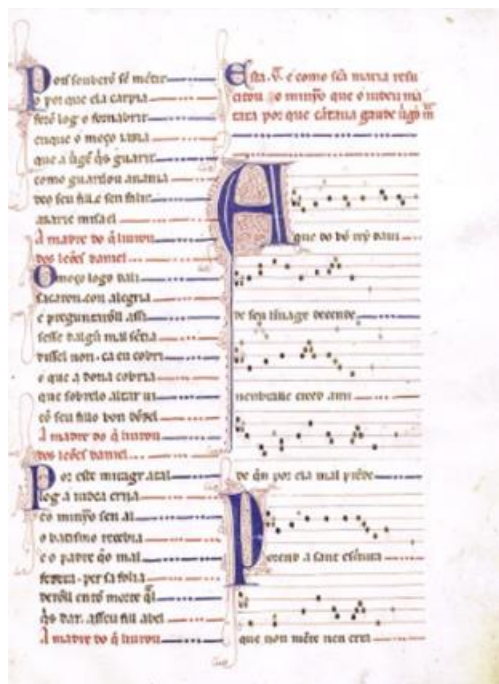 Pois souberõ sẽ mẽtir
o por que ela carpia
forõ log o fornabrir
enque o moço iazia
que a uigẽ q̃s guarir
como guardou anania
deo seu fill. e sen falir
azarie misael
A madre do q̃ liurou
dos leões daniel
O moço logo dali
sacaron con alegria
e preguntarõll assi
sesse dalgũ mal sẽtia
dissel non. ca eu cobri
o que a dona cobria
que sobrelo altar ui
cõ seu fillo bon dõzel
A madre do q̃ liurou
dos leões daniel
Por este miragr atal
log a iudea criya
eo minỹo sen al
o batismo recebia
e o padre q̃o mal
fezera. per sa folia
derõll entõ morte q̃l
q̃s dar. asseu fill abel
A madre do q̃ liurou
Esta .ṽ. e como scã maria resu
citou o minỹo que o iudeu ma
tara por que cãtaua gaude ũgo m̃
A que do bõ rey daui
de seu lĩnage decende
nenbralle creed ami
de q̃n por ela mal prẽde
Porend a sant escritura
que non mẽte nen erra